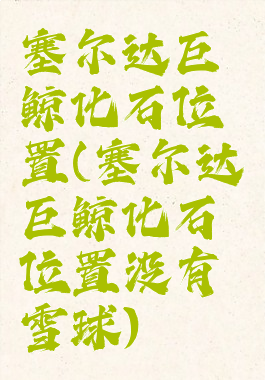 塞尔达巨
鲸化石位
置(塞尔达
巨鲸化石
位置没有
雪球)